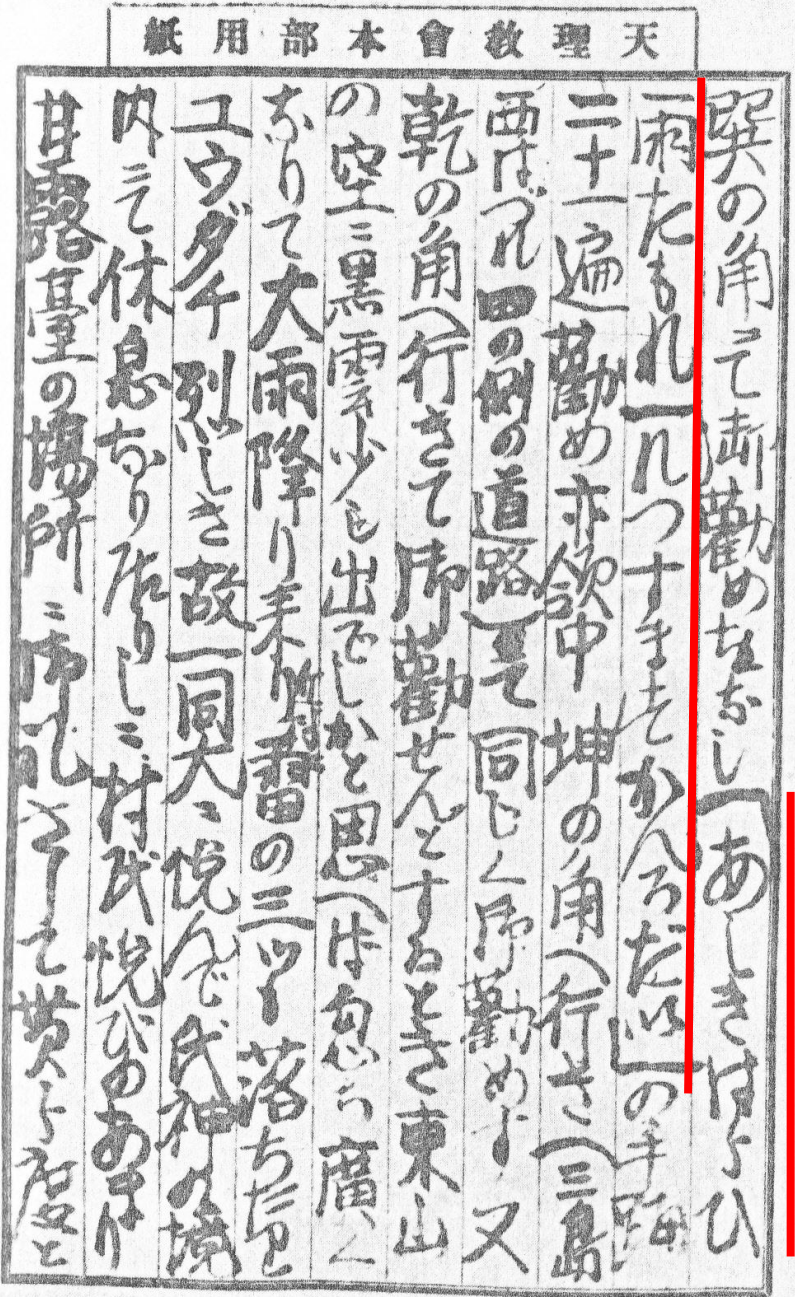 天理教會本部用紙
巽の角ニて御勸めをなし「あしきはらひ
一雨たもれ一れつすますかんろだい」の手踊
二十一遍勸め亦領中 坤の角へ行き(三島
西はづれ田の側の道路)ニて同じく御勸めす 又
乾の角へ行きて御勸せんとするとき東山
の空ニ黒雲少し出でしかと思へば忽ち廣く
なりて大雨降り来り 番の三ツも落ちだし
ユウダチ烈しき故一同大ニ悦んで氏神の境
内ニて休息なり居りしニ村民悦びのあまり
甘露臺の場所ニ御礼をして貰ら度と